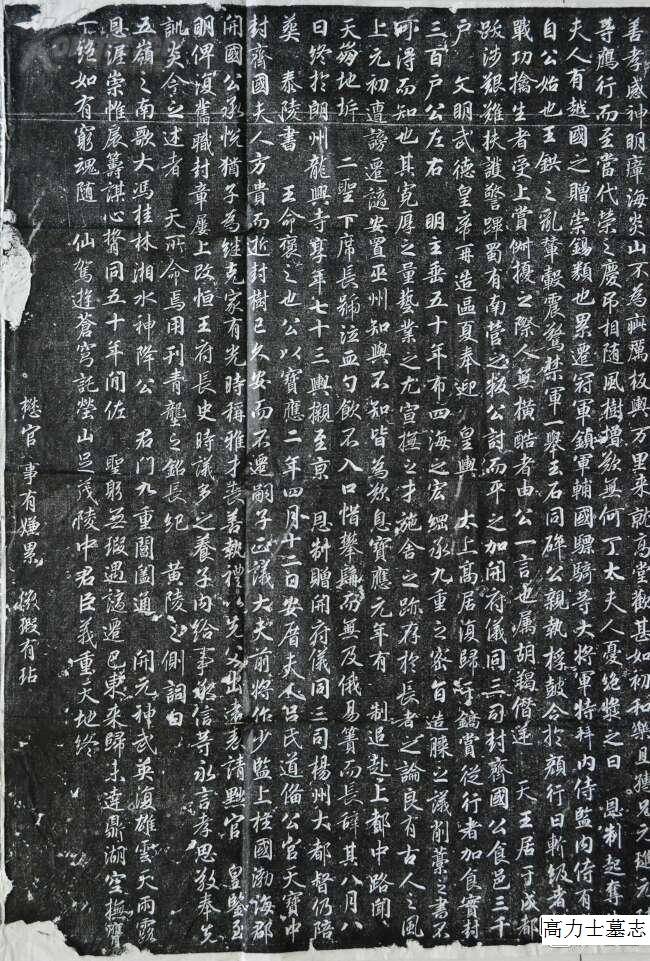 善孝感神明瘴海炎山不為疵厲板輿万里来就高堂歡甚如初和樂且躭兄元璡元
等應行而至當代榮之慶弔相隨風樹增歎無何丁太夫人憂絕漿之日恩制起奪
夫人有越國之贈崇錫類也累遷冠軍鎮軍輔國驃騎等大將軍特拜内侍監内侍有
自公始也王鉷之亂輦轂震驚禁軍一舉玉石同碎公親執桴鼓令於顏行曰斬級者
戰功擒生者受上賞擾之際人無橫酷者由公一言也属胡羯僭逆 天王居于成都
跋涉艱難扶護警蹕蜀有南營之叛公討而平之加開府儀同三司封齊國公食邑三千
户 文明武德皇帝再造區夏奉迎 皇輿 太上高居復歸于鎬賞從行者加食實封
三百户公左右 明主垂五十年布四海之宏綱承九重之密旨造膝之議削藁之書不
可得而知也其寬厚之量藝業之尤宣撫之才施舍之跡存於長者之論良有古人之風
上元初遭謗遷謫安置巫州知與不知皆為歎息寶應元年有 制追赴上都中路聞
天崩地坼 二聖下席長號泣血勺飲不入口惜攀髯而無及俄易簀而長辭其八月八
日終於朗州龍興寺享年七十三輿櫬至京 恩制贈開府儀同三司揚州大都督仍陪
葬 泰陵書 王命褒之也公以寶應二年四月十二日安厝夫人呂氏道備公宫天寶中
封齊國夫人方貴而逝封樹已久安而不遷嗣子正議大夫前將作少監上柱國渤海郡
開國公承悅猶子為继克家有光時稱雅才善執禮以先父出遠表請黜官 皇鑒至
明俾復舊職封章屢上改恒王府長史時議多之養子内給事承信等永言孝思敬奉先
訓炎今之述者 天所命焉用刊青礱之銘長紀 黄陵之側詞曰
五嶺之南歌大馮桂林湘水神降公 君門九重閶闔通 開元神武英復雄雲天雨露
恩渥崇帷扆籌謀心膂同五十年間佐 聖躬無瑕遇謫遷巴東来歸未達鼎湖空撫膺
一絶如有窮魂隨 仙駕遊蒼穹託塋山足茂陵中君臣義重天地終
官 事有嫌累 掇瑕有玷
高力士墓志